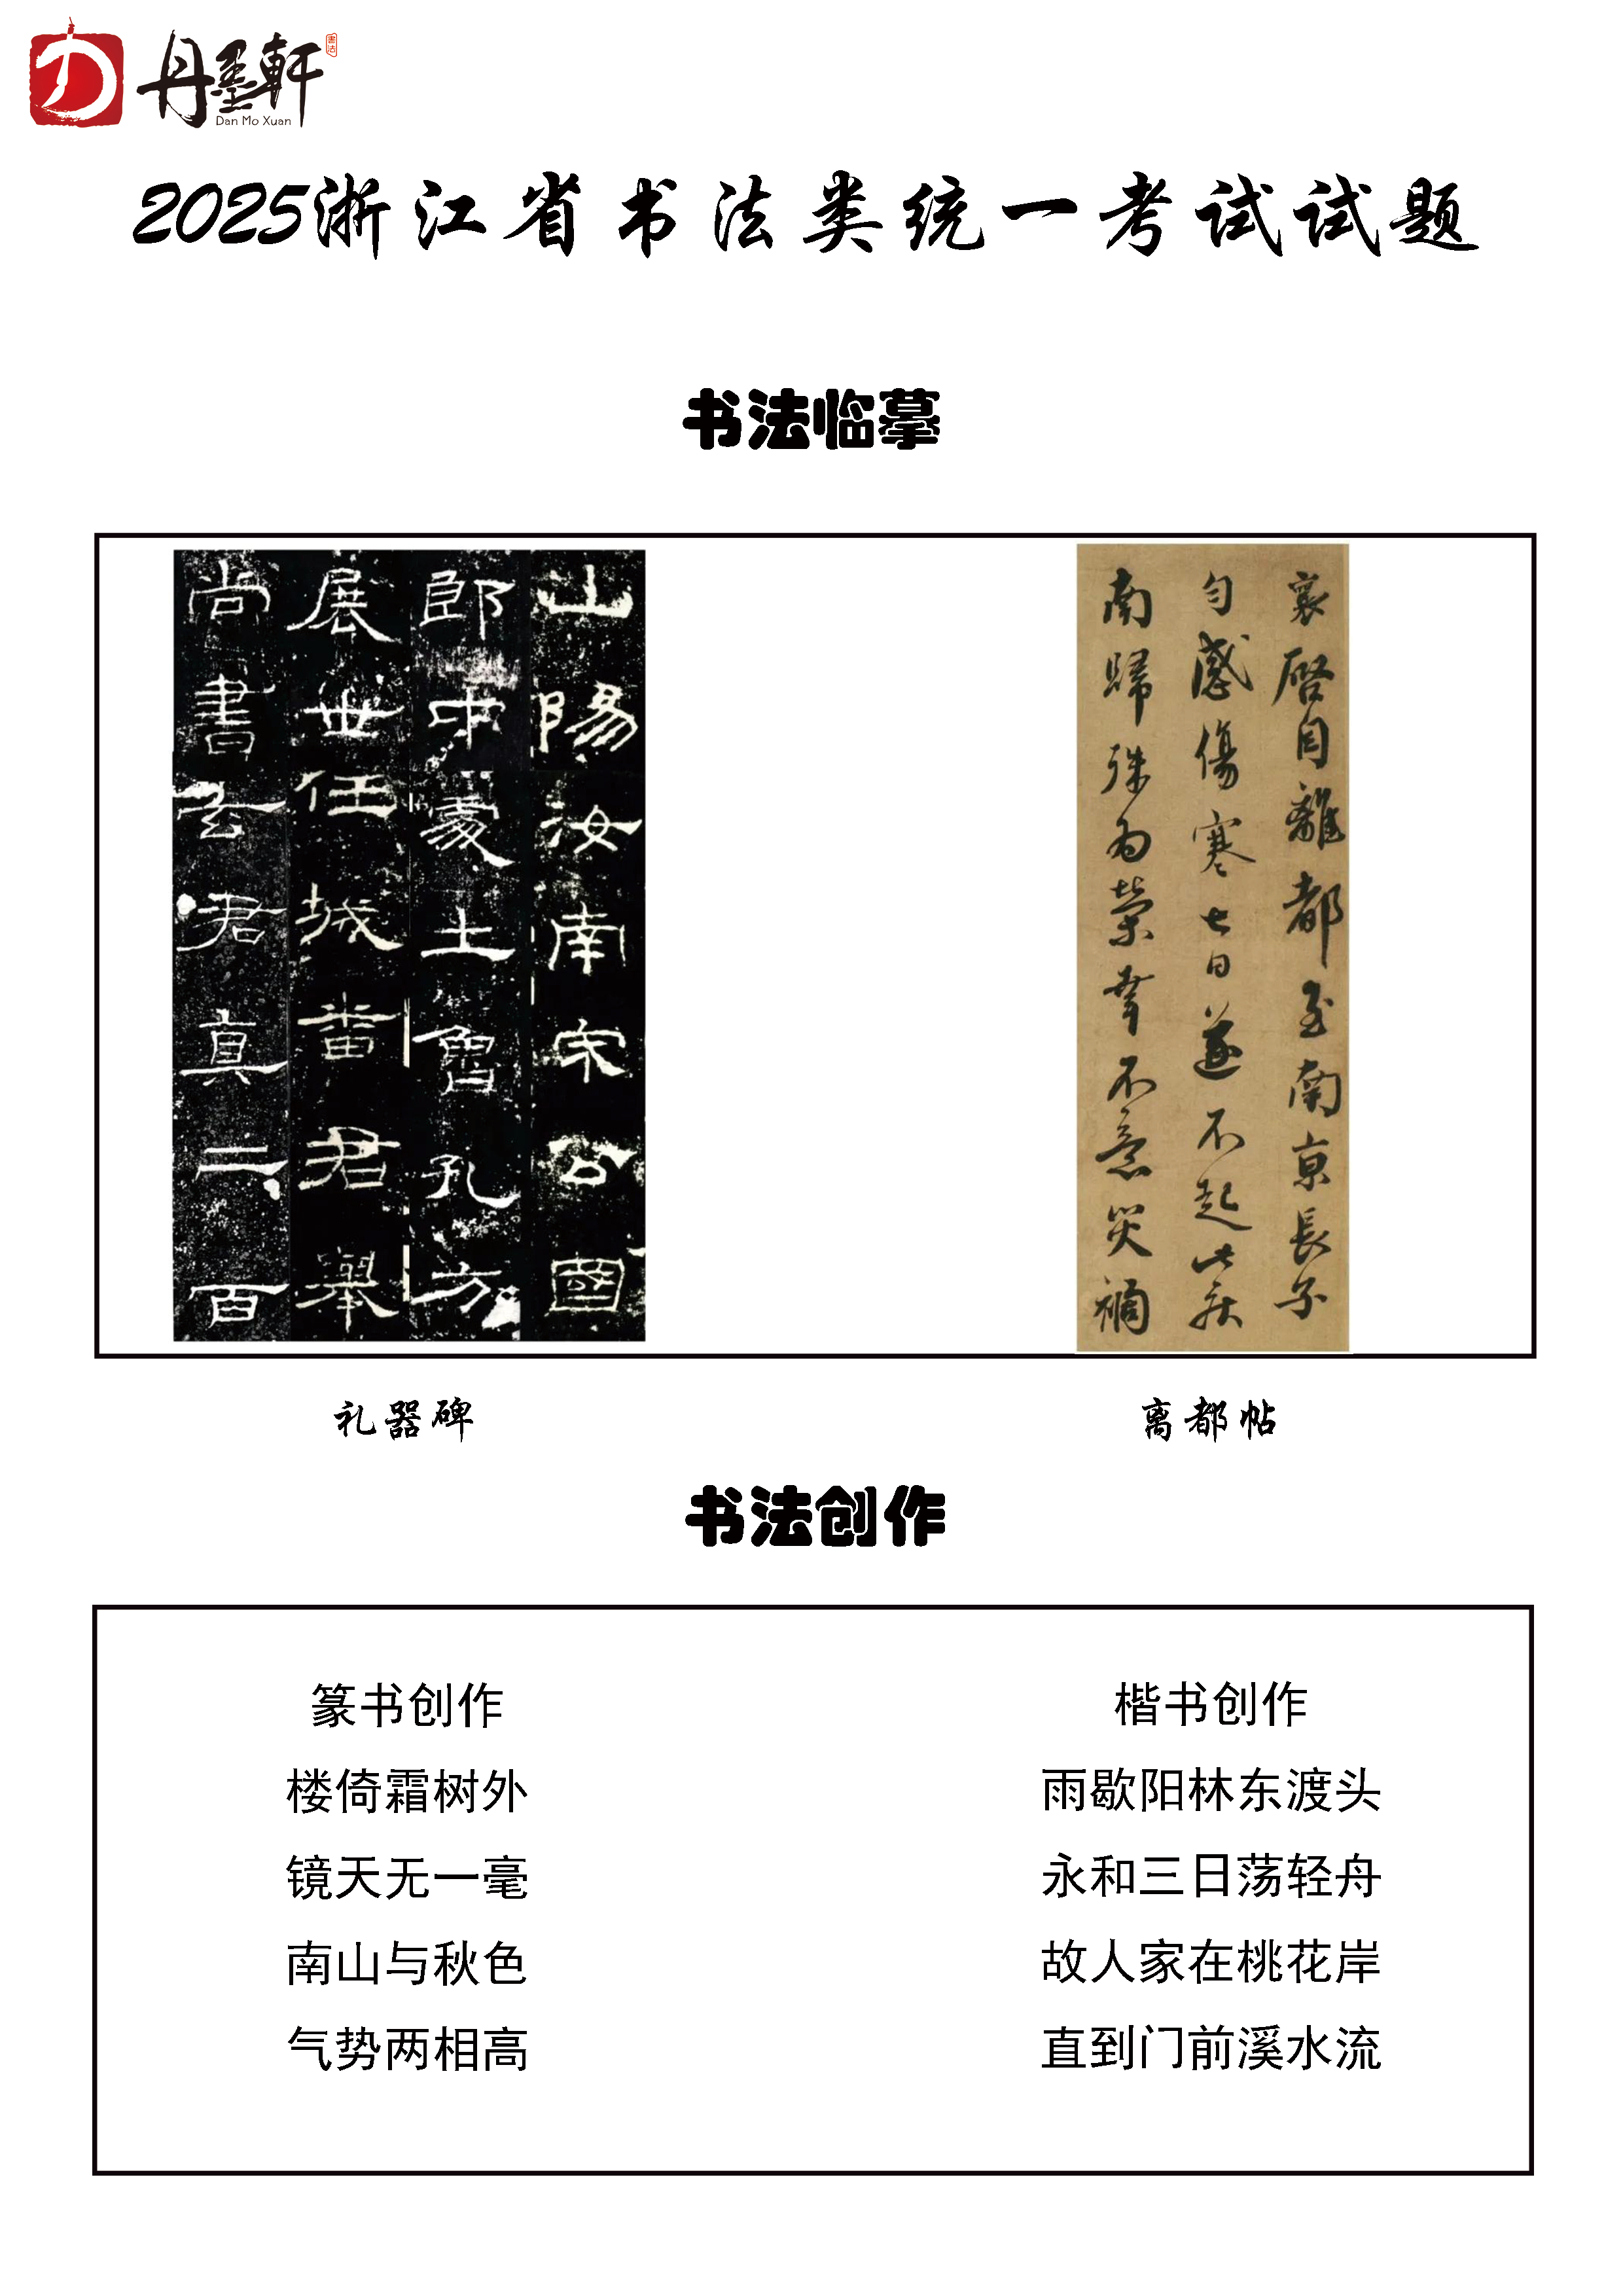 丹墨軒
书法
Dan Mo Xuan
2025浙江省书法类统一考试试题
书法临摹
山陽汝南宋公國
郎中豪土魯孔方
展世任城番君舉
尚書玄君真二百
襄啓自離都至南京長子
勻感傷寒七日遂不起此疾
南歸殊為榮幸不意災禍
礼器碑
离都帖
书法创作
篆书创作
楼倚霜树外
镜天无一毫
南山与秋色
气势两相高
楷书创作
雨歇阳林东渡头
永和三日荡轻舟
故人家在桃花岸
直到门前溪水流